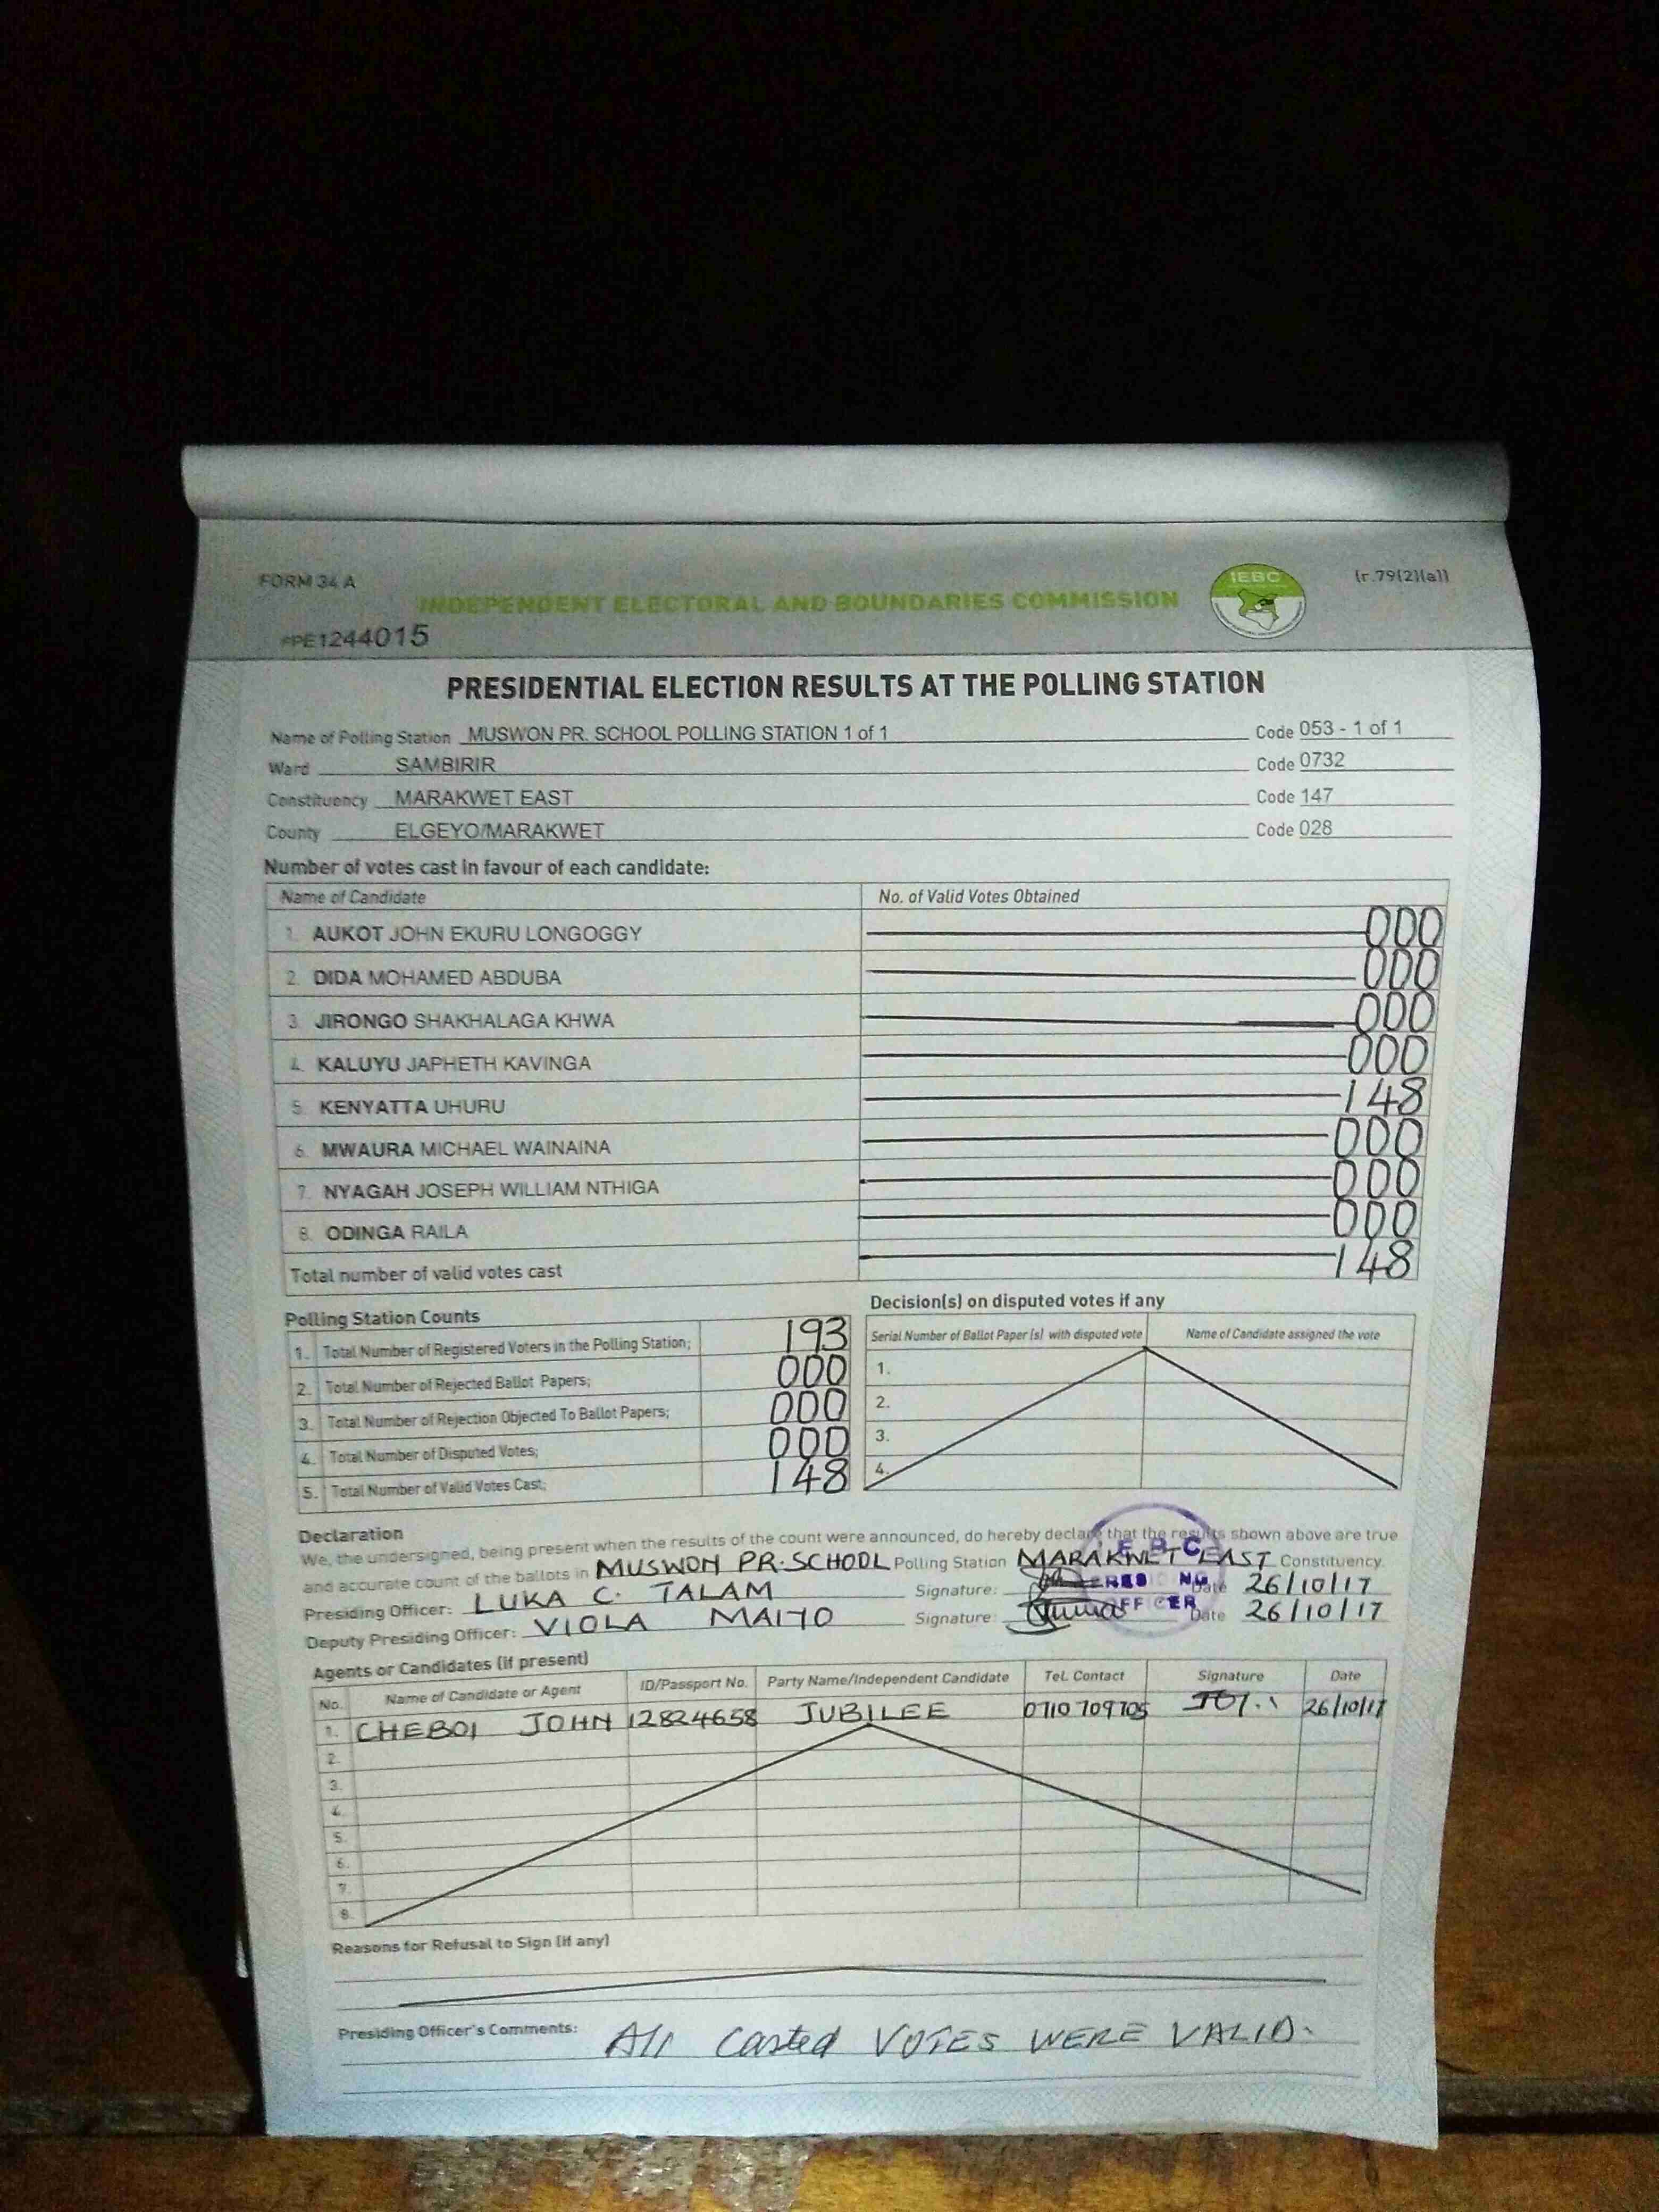 FORM 34 A
IEBC
(r.79(2)(a))
INDEPENDENT ELECTORAL AND BOUNDARIES COMMISSION
#PE1244015
PRESIDENTIAL ELECTION RESULTS AT THE POLLING STATION
Name of Polling Station MUSWON PR. SCHOOL POLLING STATION 1 of 1 Code 053 - 1 of 1
Ward SAMBIRIR Code 0732
Constituency MARAKWET EAST Code 147
County ELGEYO/MARAKWET Code 028
Number of votes cast in favour of each candidate:
Name of Candidate No. of Valid Votes Obtained
1. AUKOT JOHN EKURU LONGOGGY 000
2. DIDA MOHAMED ABDUBA 000
3. JIRONGO SHAKHALAGA KHWA 000
4. KALUYU JAPHETH KAVINGA 000
5. KENYATTA UHURU 148
6. MWAURA MICHAEL WAINAINA 000
7. NYAGAH JOSEPH WILLIAM NTHIGA 000
8. ODINGA RAILA 000
Total number of valid votes cast 148
Polling Station Counts
1. Total Number of Registered Voters in the Polling Station; 193
2. Total Number of Rejected Ballot Papers; 000
3. Total Number of Rejection Objected To Ballot Papers; 000
4. Total Number of Disputed Votes; 000
5. Total Number of Valid Votes Cast; 148
Decision(s) on disputed votes if any
Serial Number of Ballot Paper (s) with disputed vote Name of Candidate assigned the vote
1.
2.
3.
4.
Declaration
We, the undersigned, being present when the results of the count were announced, do hereby declare that the results shown above are true
and accurate count of the ballots in MUSWON PR. SCHOOL Polling Station MARAKWET EAST Constituency.
Presiding Officer: LUKA C. TALAM Signature: Date 26/10/17
Deputy Presiding Officer: VIOLA MAIYO Signature: Date 26/10/17
I.E.B.C
PRESIDING
OFFICER
Agents or Candidates (if present)
No. Name of Candidate or Agent ID/Passport No. Party Name/Independent Candidate Tel. Contact Signature Date
1. CHEBOI JOHN 12824658 JUBILEE 0710 709705 26/10/17
2.
3.
4.
5.
6.
7.
8.
Reasons for Refusal to Sign (if any)
Presiding Officer's Comments: All Casted VOTES WERE VALID.